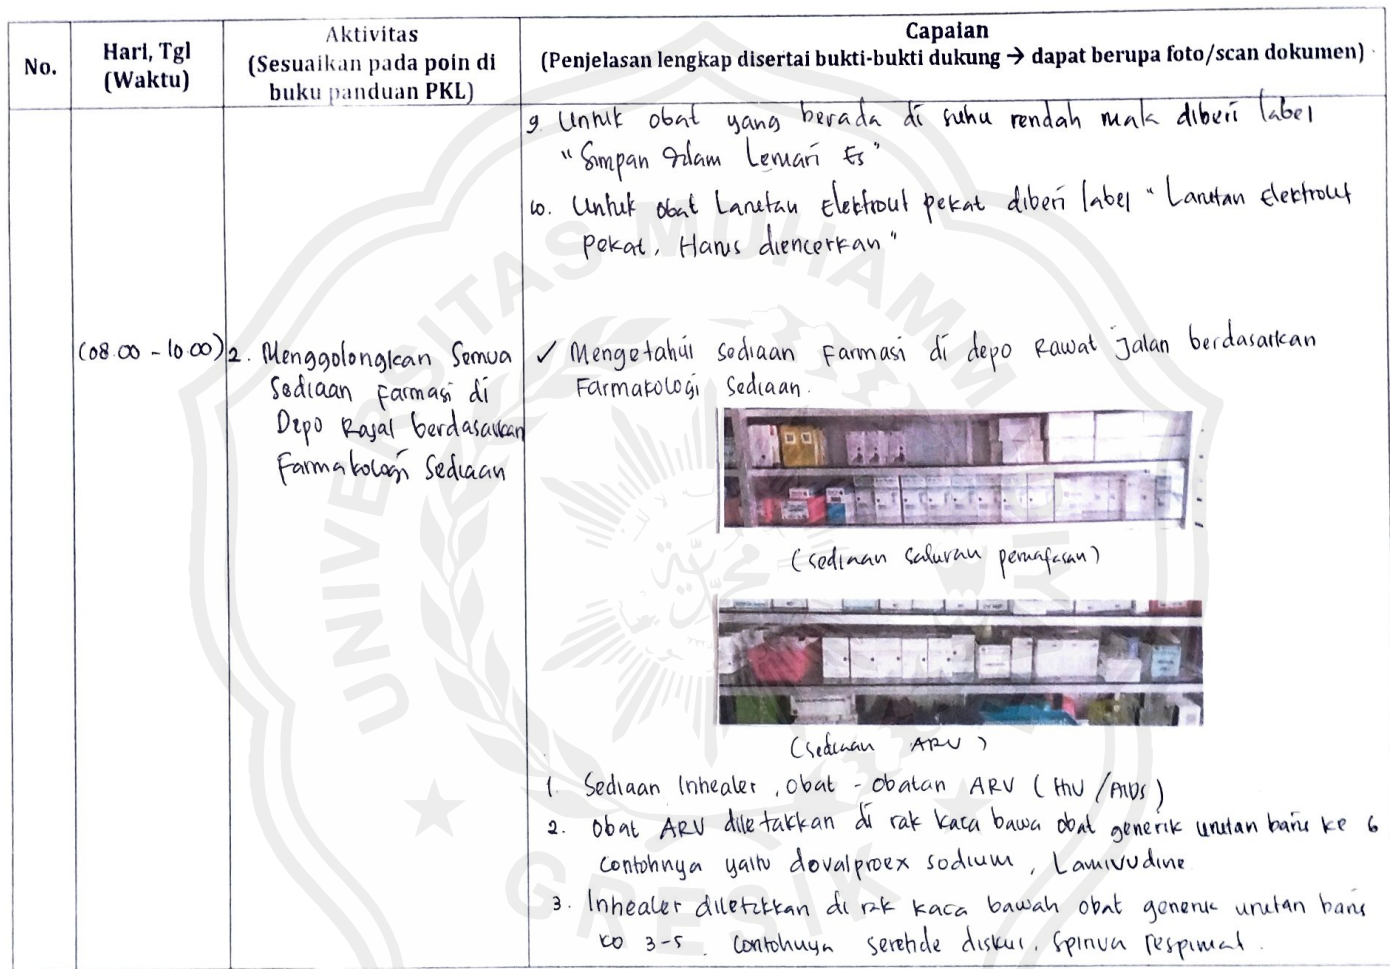 No.
Hari, Tgl
(Waktu)
Aktivitas
(Sesuaikan pada poin di
buku panduan PKL)
Capaian
(Penjelasan lengkap disertai bukti-bukti dukung → dapat berupa foto/scan dokumen)
9. Untuk obat yang berada di suhu rendah maka diberi label
"Simpan dalam Lemari Es"
10. Untuk obat Larutan Elektrolit pekat diberi label "Larutan Elektrolit
pekat, Harus diencerkan"
(08.00 - 10.00)
2. Menggolongkan Semua
Sediaan Farmasi di
Depo Rajal berdasarkan
Farmakologi Sediaan
✓ Mengetahui sediaan Farmasi di depo Rawat jalan berdasarkan
Farmakologi Sediaan.
(sediaan saluran pernafasan)
(Sediaan ARV)
1. Sediaan Inhealer, obat - obatan ARV (HIV/AIDS)
2. Obat ARV diletakkan di rak kaca bawa obat generik urutan baris ke 6
contohnya yaitu dovalproex sodium, Lamivudine
3. Inhealer diletakkan di rak kaca bawah obat generik urutan baris
ke 3-5. contohnya seretide diskus, spiriva respimat.
UNIVERSITAS MUHAMMADIYAH
GRESIK